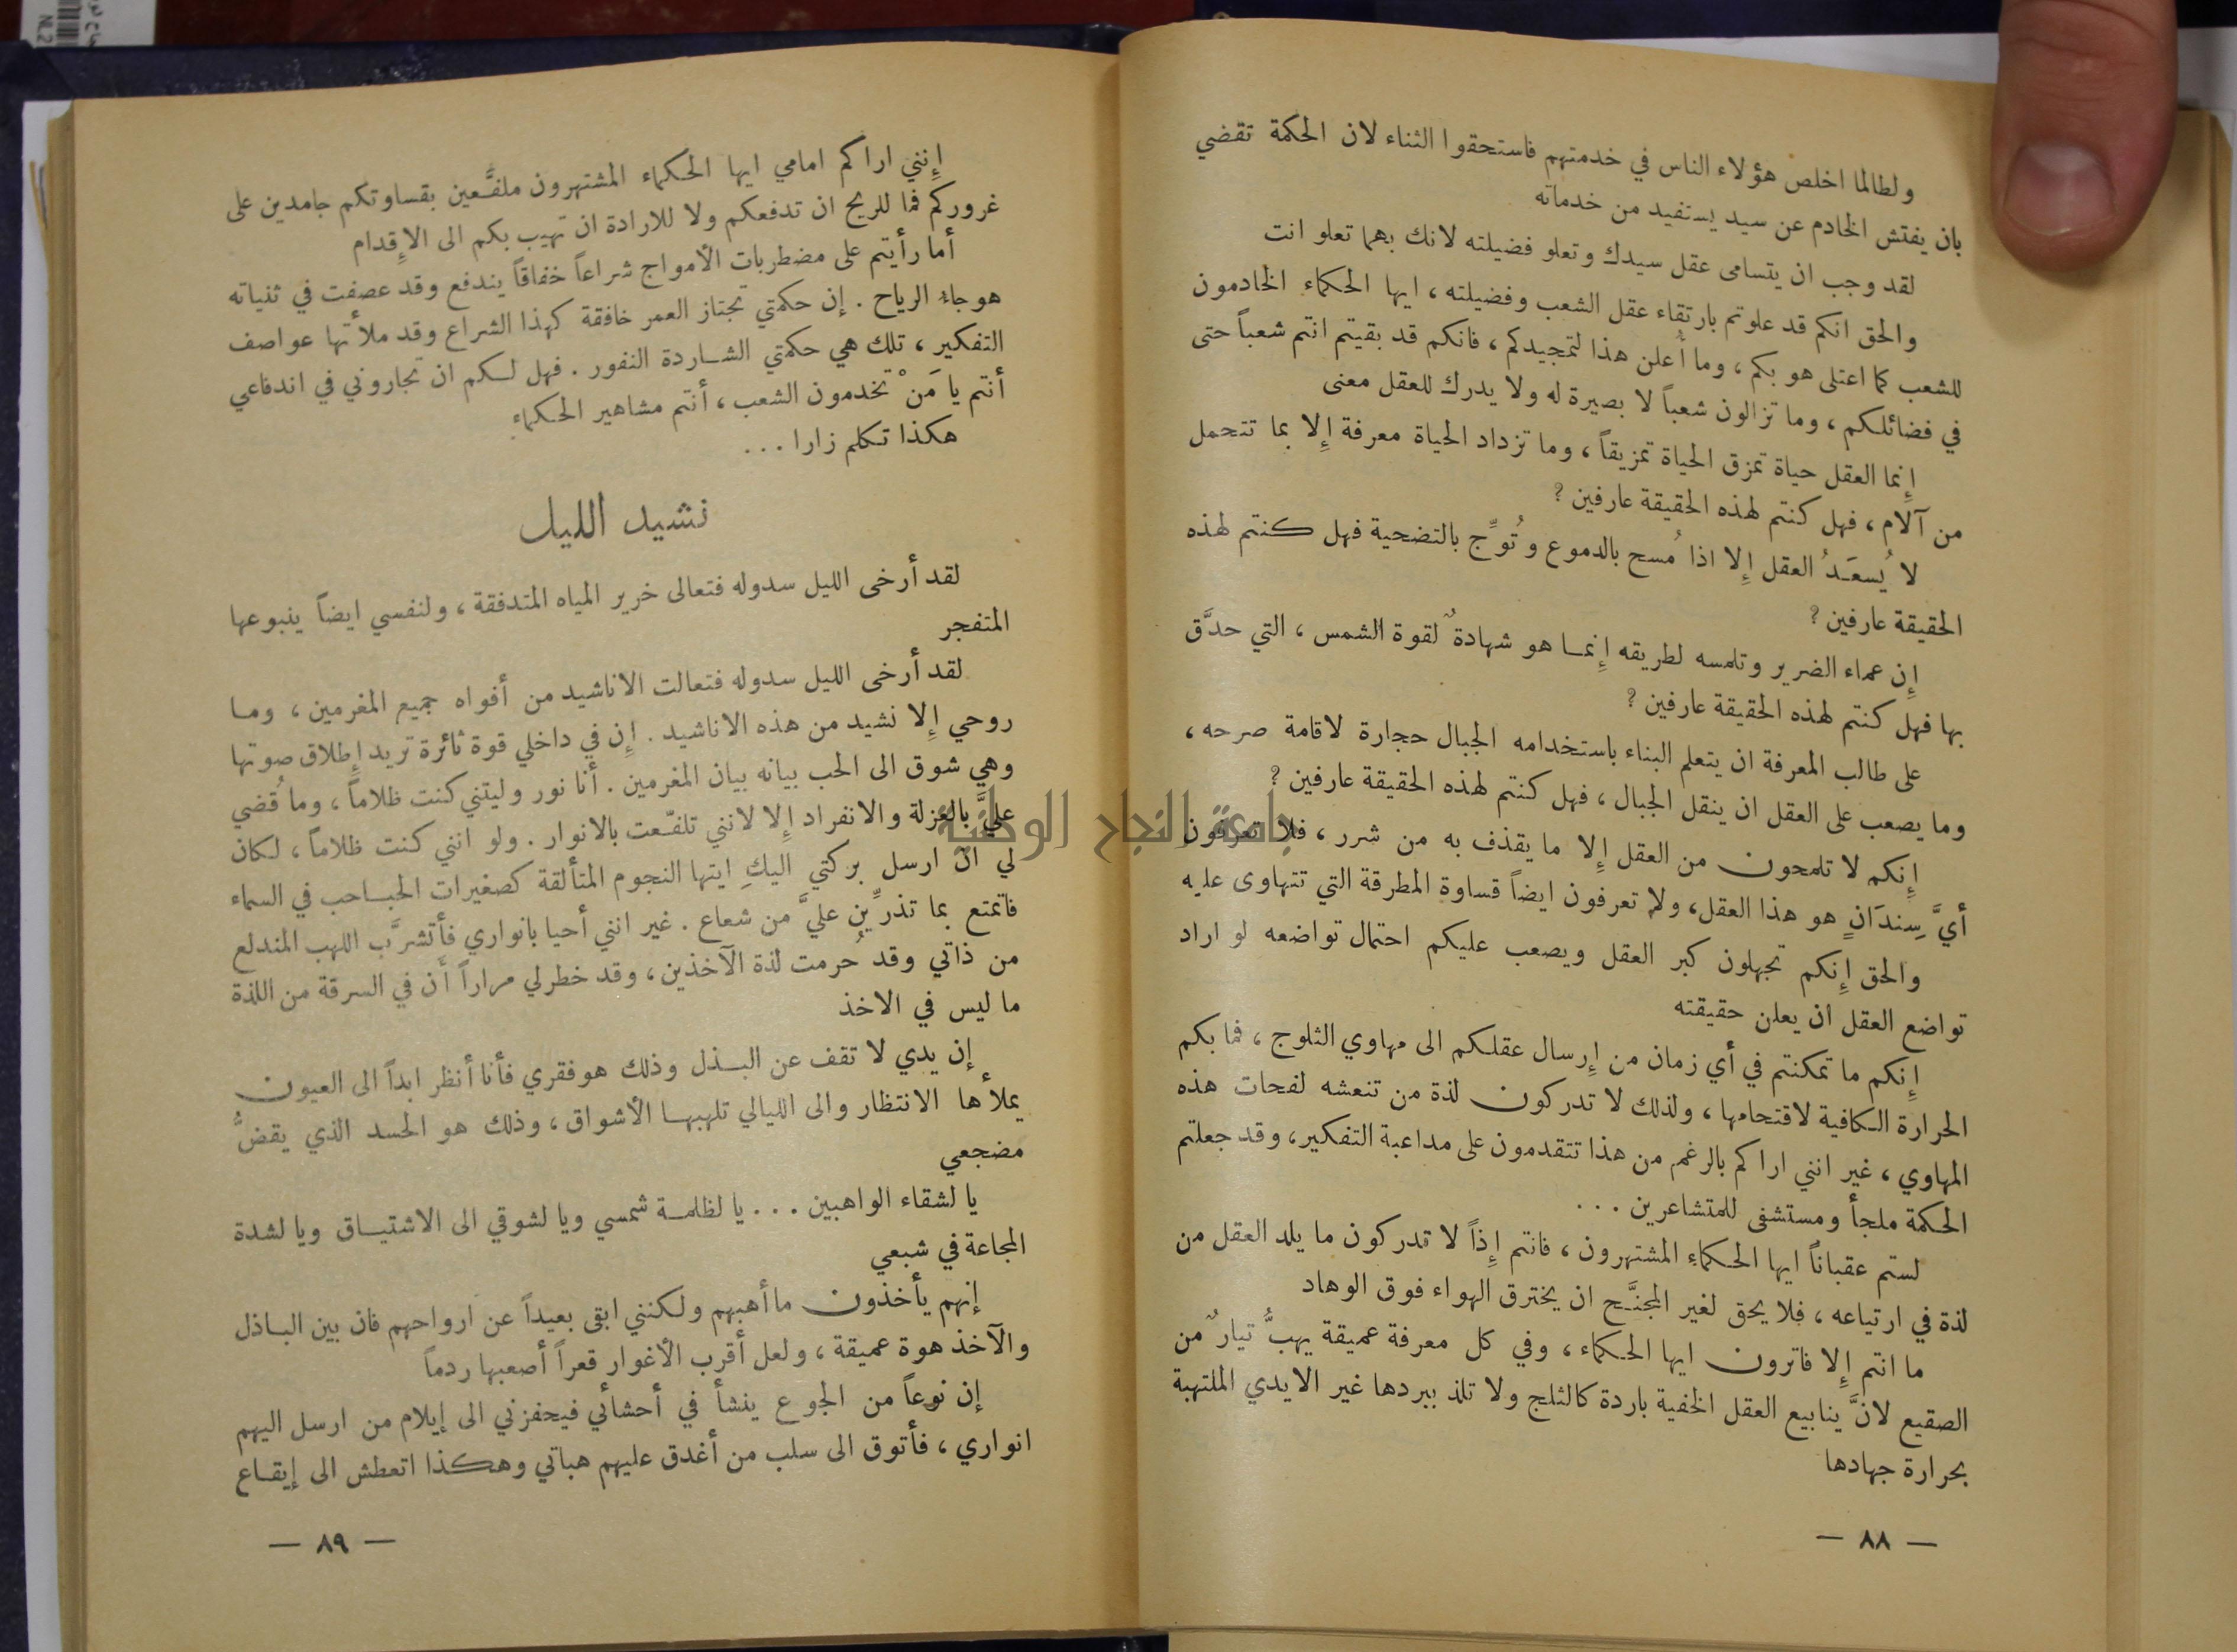 ولطالما اخلص هؤلاء الناس في خدمتهم فاستحقوا الثناء لان الحكمة تقضي
بان يفتش الخادم عن سيد يستفيد من خدماته
لقد وجب ان يتسامى عقل سيدك وتعلو فضيلته لانك بهما تعلو انت
والحق انكم قد علوتم بارتقاء عقل الشعب وفضيلته ، ايها الحكماء الخادمون
للشعب كما اعتلى هو بكم ، وما أعلن هذا لتمجيدكم ، فانكم قد بقيتم انتم شعباً حتى
في فضائلكم ، وما تزالون شعباً لا بصيرة له ولا يدرك للعقل معنى
إنما العقل حياة تمزق الحياة تمزيقاً ، وما تزداد الحياة معرفة إلا بما تتحمل
من آلام ، فهل كنتم لهذه الحقيقة عارفين ?
لا يُسعَدُ العقل إلا اذا مُسح بالدموع وتُوِّج بالتضحية فهل كنتم لهذه
الحقيقة عارفين ?
إن عماء الضرير وتلمسه لطريقه إنما هو شهادةٌ لقوة الشمس ، التي حدَّق
بها فهل كنتم لهذه الحقيقة عارفين ?
على طالب المعرفة ان يتعلم البناء باستخدامه الجبال حجارة لاقامة صرحه ،
وما يصعب على العقل ان ينقل الجبال ، فهل كنتم لهذه الحقيقة عارفين ?
إنكم لا تلمحون من العقل إلا ما يقذف به من شرر ، فلا تعرفون
أيَّ سِندَانٍ هو هذا العقل، ولا تعرفون ايضاً قساوة المطرقة التي تتهاوى عليه
والحق إنكم تجهلون كبر العقل ويصعب عليكم احتمال تواضعه لو اراد
تواضع العقل ان يعلن حقيقته
إنكم ما تمكنتم في أي زمان من إرسال عقلكم الى مهاوي الثلوج ، فما بكم
الحرارة الكافية لاقتحامها ، ولذلك لا تدركون لذة من تنعشه لفحات هذه
المهاوي ، غير انني اراكم بالرغم من هذا تتقدمون على مداعبة التفكير، وقد جعلتم
الحكمة ملجأ ومستشفى للمتشاعرين ...
لستم عقباناً ايها الحكماء المشتهرون ، فانتم إذاً لا تدركون ما يلد العقل من
لذة في ارتياعه ، فلا يحق لغير المجنَّح ان يخترق الهواء فوق الوهاد
ما انتم إلا فاترون ايها الحكماء ، وفي كل معرفة عميقة يهبُّ تيارٌ من
الصقيع لانَّ ينابيع العقل الخفية باردة كالثلج ولا تلذ ببردها غير الايدي الملتهبة
بحرارة جهادها
— ٨٨ —
إنني اراكم امامي ايها الحكماء المشتهرون ملفَّعين بقساوتكم جامدين على
غروركم فما للريح ان تدفعكم ولا للارادة ان تهيب بكم الى الإقدام
أما رأيتم على مضطربات الأمواج شراعاً خفاقاً يندفع وقد عصفت في ثنياته
هوجاء الرياح . إن حكمتي تجتاز العمر خافقة كهذا الشراع وقد ملأتها عواصف
التفكير ، تلك هي حكمتي الشاردة النفور . فهل لكم ان تجاروني في اندفاعي
أنتم يا مَنْ تخدمون الشعب ، أنتم مشاهير الحكماء
هكذا تكلم زارا ...
نشيد الليل
لقد أرخى الليل سدوله فتعالى خرير المياه المتدفقة ، ولنفسي ايضاً ينبوعها
المتفجر
لقد أرخى الليل سدوله فتعالت الاناشيد من أفواه جميع المغرمين ، وما
روحي إلا نشيد من هذه الاناشيد . إن في داخلي قوة ثائرة تريد إطلاق صوتها
وهي شوق الى الحب بيانه بيان المغرمين . أنا نور وليتني كنت ظلاماً ، وما قُضي
عليَّ بالعزلة والانفراد إلا لانني تلفّعت بالانوار . ولو انني كنت ظلاماً ، لكان
لي ان ارسل بركتي اليكِ ايتها النجوم المتألقة كصغيرات الحباحب في السماء
فأتمتع بما تذرِّين عليَّ من شعاع . غير انني أحيا بانواري فأتشرَّب اللهب المندلع
من ذاتي وقد حُرمت لذة الآخذين ، وقد خطر لي مراراً أن في السرقة من اللذة
ما ليس في الاخذ
إن يدي لا تقف عن البذل وذلك هو فقري فأنا أنظر ابداً الى العيون
يملأها الانتظار والى الليالي تلهبها الأشواق ، وذلك هو الحسد الذي يقضُّ
مضجعي
يا لشقاء الواهبين ... يا لظلمة شمسي ويا لشوقي الى الاشتياق ويا لشدة
المجاعة في شبعي
إنهم يأخذون ما أهبهم ولكنني ابقى بعيداً عن ارواحهم فان بين الباذل
والآخذ هوة عميقة ، ولعل أقرب الأغوار قعراً أصعبها ردماً
إن نوعاً من الجوع ينشأ في أحشائي فيحفزني الى إيلام من ارسل اليهم
انواري ، فأتوق الى سلب من أغدق عليهم هباتي وهكذا اتعطش الى إيقاع
— ٨٩ —
جامعة النجاح الوطنية